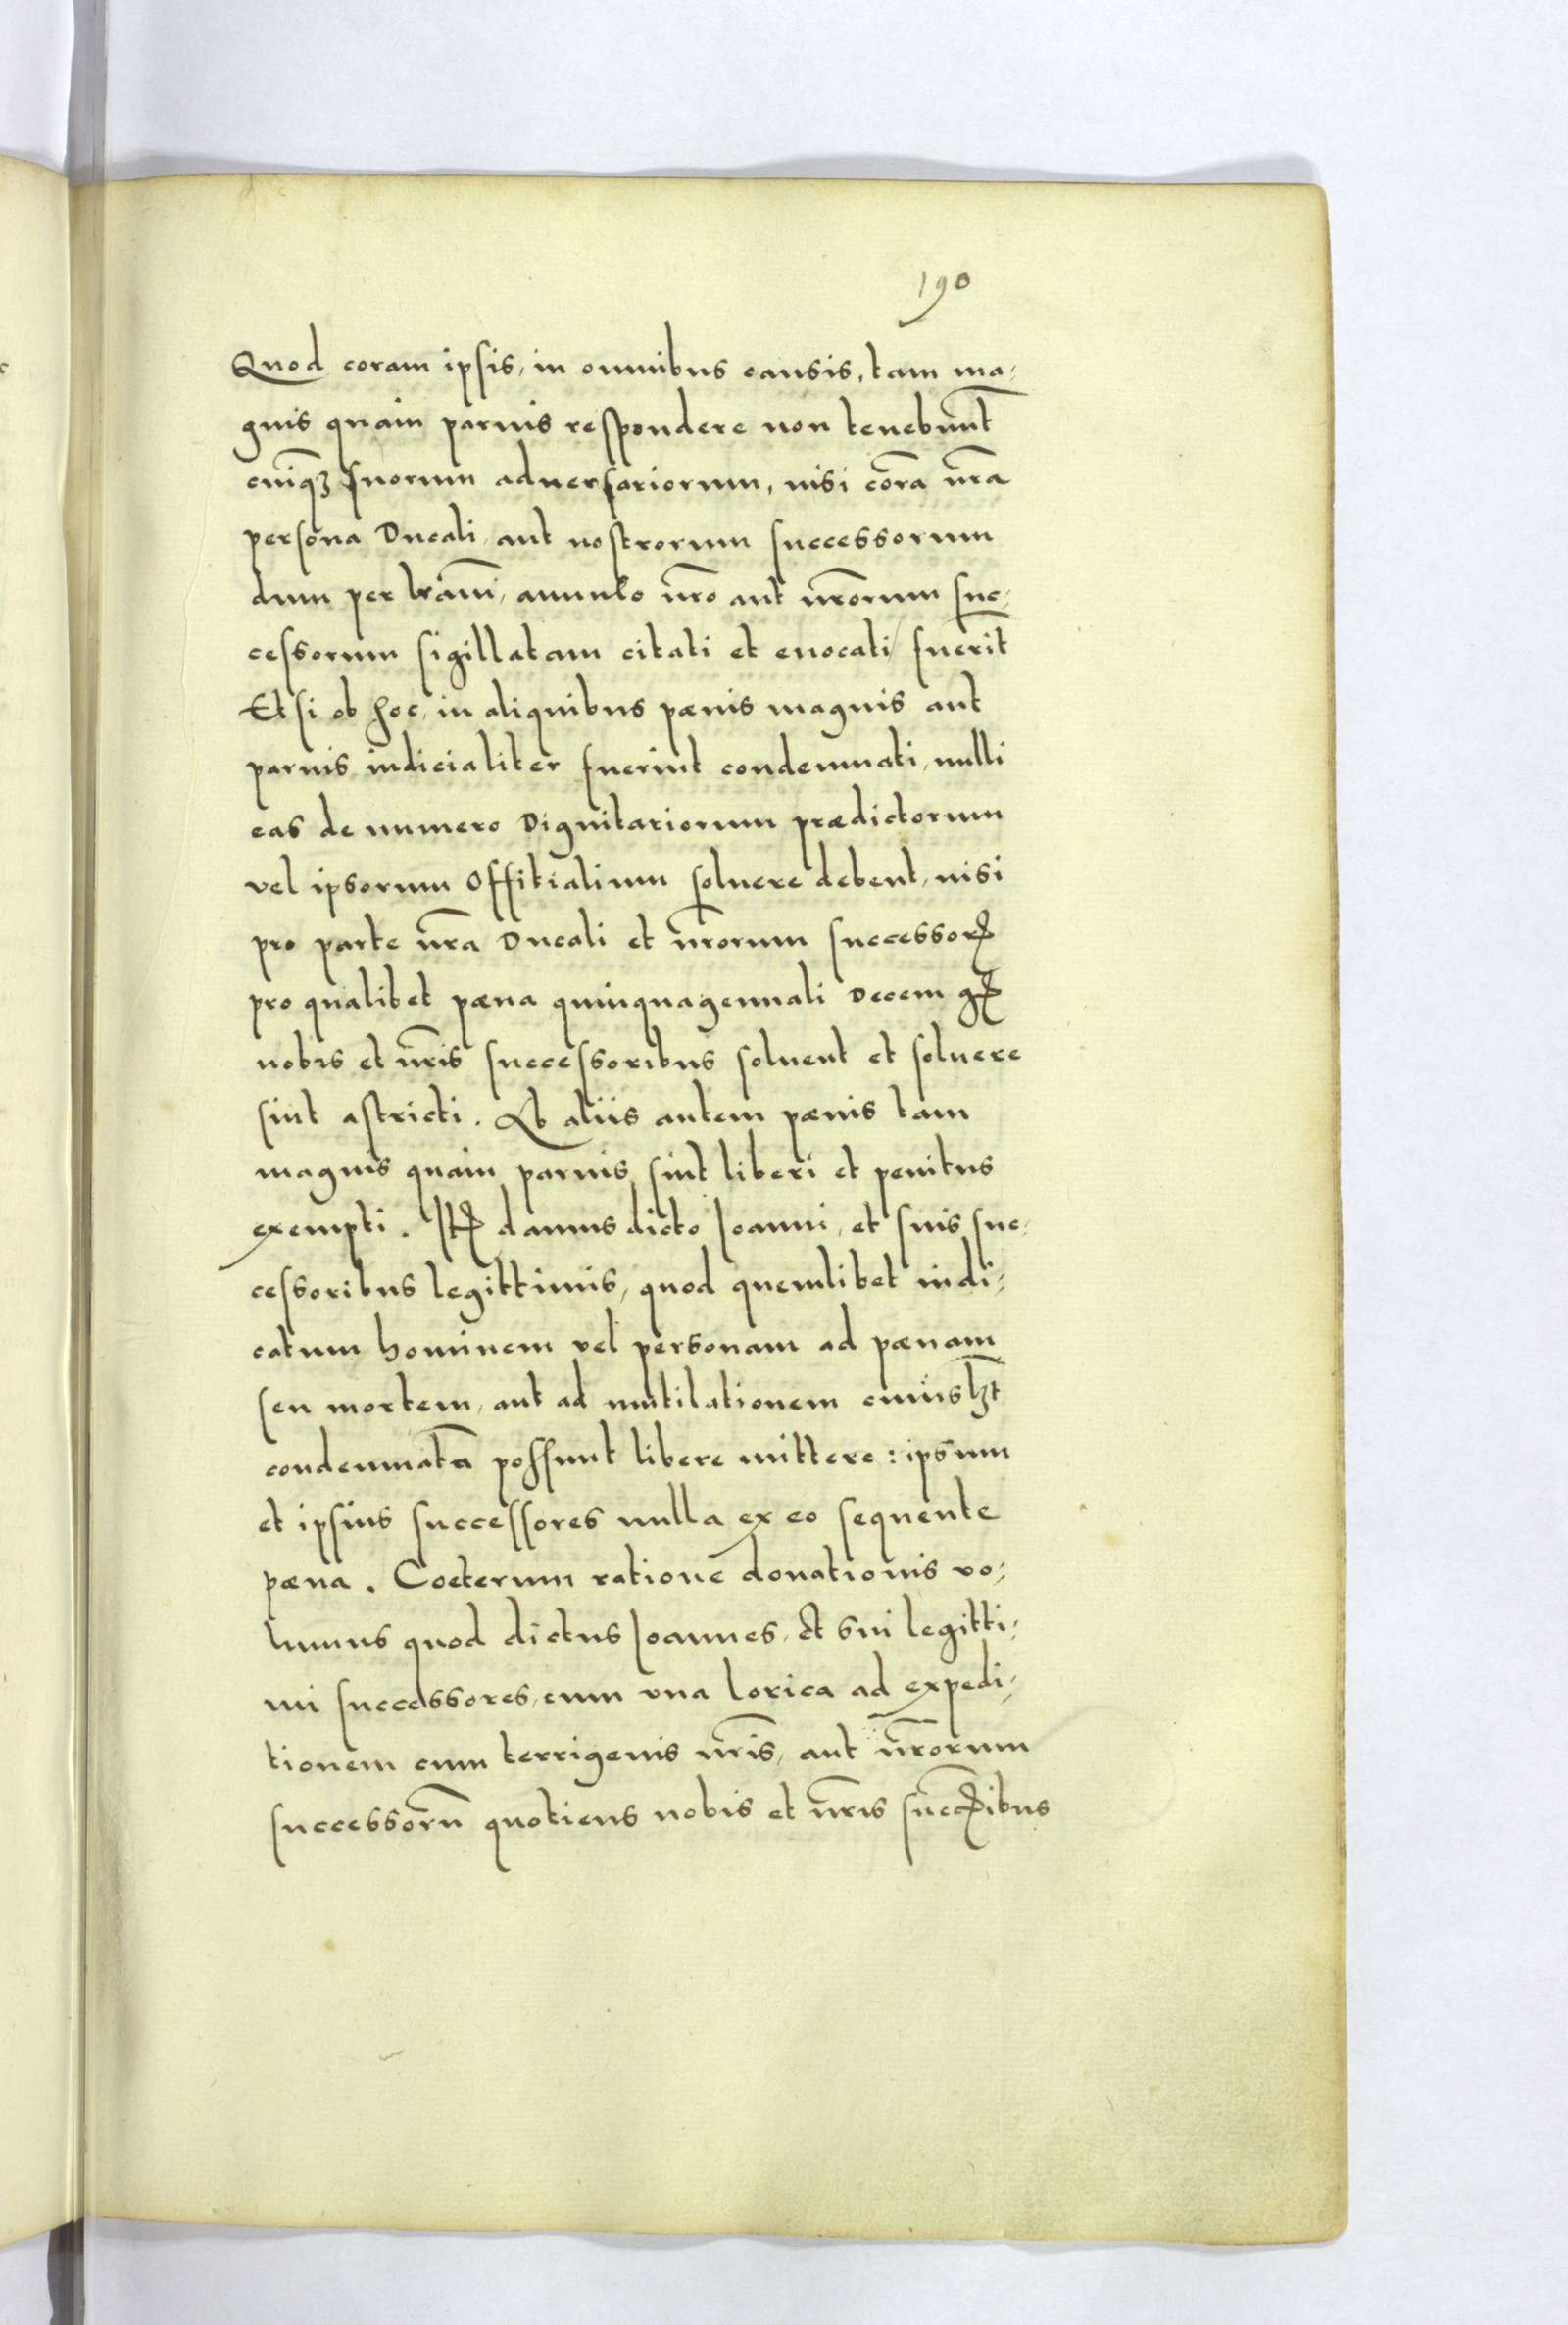 190
Quod coram ipsis, in omnibus causis, tam ma-
gnis quam paruis respondere non tenebunt̃
cuiq̃ȝ suorum aduersariorum, nisi corã nr̃a
persona Ducali, aut nostrorum successorum
dum per lr̃am, annulo nr̃o aut nr̃orum suc-
cessorum sigillatam citati et euocati fuerĩt
Et si ob hoc, in aliquibus pœnis magnis aut
paruis iudicialiter fuerint condemnati, nulli
eas de numero Dignitariorum prædictorum
vel ipsorum Offitialium soluere debent, nisi
pro parte nr̃a Ducali et nr̃orum successorꝝ
pro qualibet pœna quinquagennali Decem gꝝ
nobis et nr̃is successoribus soluent et soluere
sint astricti. Ab aliis autem pœnis tam
magnis quam paruis, sint liberi et penitus
exempti. Itꝝ damus dicto Ioanni, et suis suc-
cessoribus legittimis, quod quemlibet iudi-
catum hominem vel personam ad pœnam
seu mortem, aut ad mutilationem cuiuslȝt
condemnatã possunt libere mittere: ipsum
et ipsius successores nulla ex eo sequente
pœna. Cœterum ratione donationis vo-
lumus quod dictus Ioannes, et sui legitti-
mi successores, cum vna lorica ad expedi-
tionem cum terrigenis nr̃is, aut nr̃orum
successorũ quotiens nobis et nr̃is succꝝibus